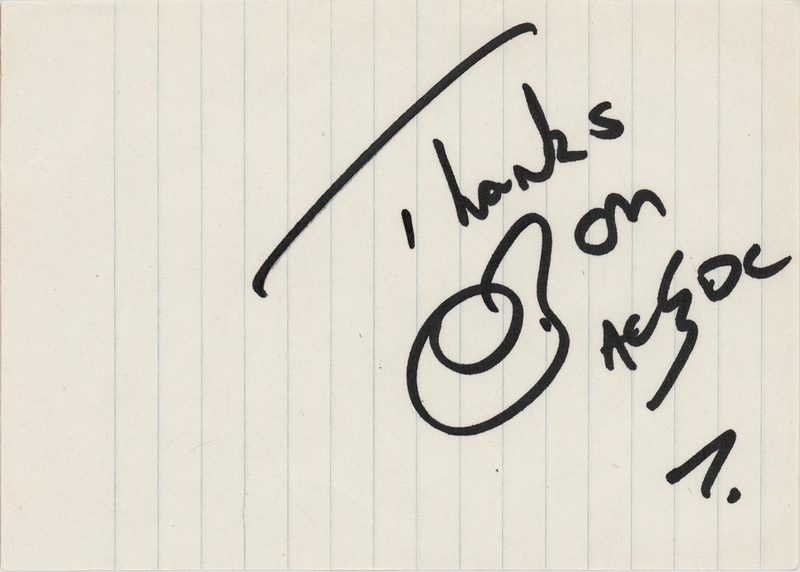 Thanks
on
AC⚡DC
1.